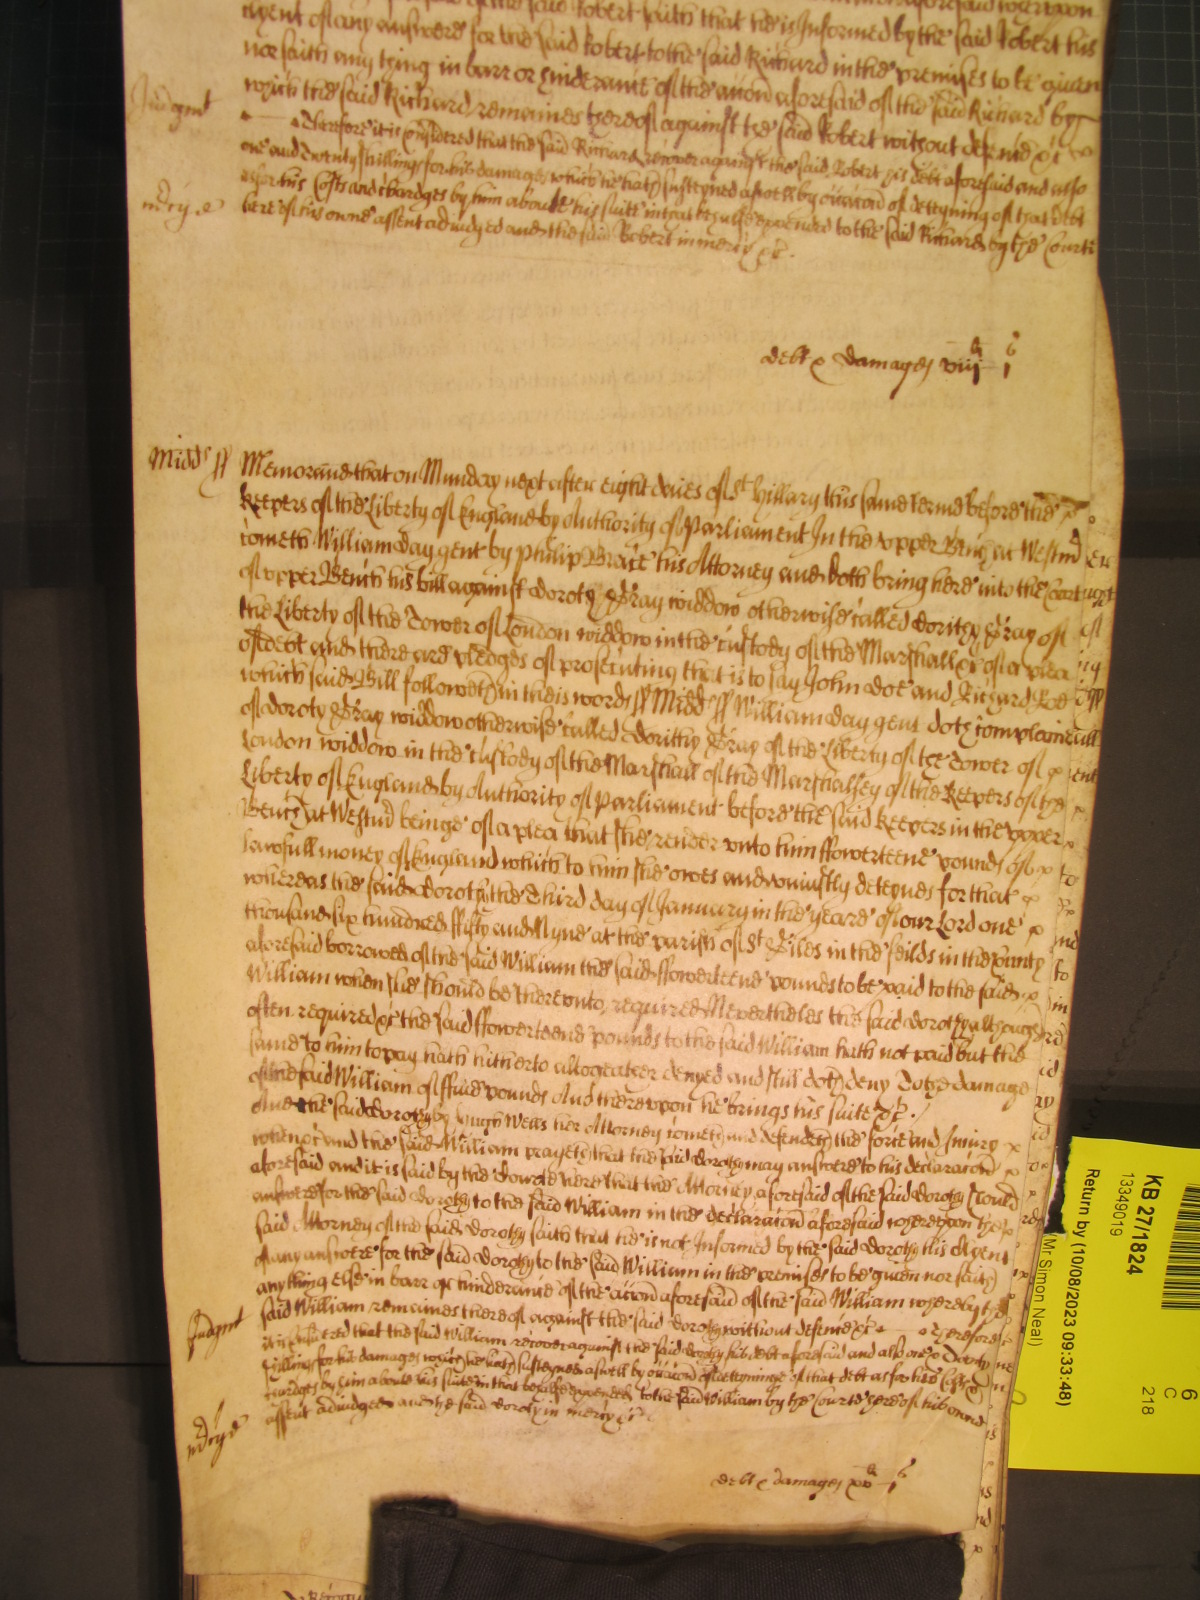 of the said Robert saith that he is not Informed by the said Robert his
clyent of any answere for the said Robert to the said Richard in the premises to be given
nor saith any thing in barr or hinderance of the accon aforesaid of the said Richard by
which the said Richard remaines thereof against the said Robert without defence &c
Judgmt
Therefore it is considered that the said Richard recover against the said Robert his debt aforesaid and also
one and Twenty shillings for his damages which he hath susteyned aswell by occacon of deteyning of that debt
as for his Costs and Chardges by him about his suite in that behalfe expended to the said Richard by the Courte
mercye
here of his owne assent adiudged and the said Robert in mercy &c.
debt & damages viiij li j s
Midds ss Memorand that on Munday next after eight daies of St Hillary this same terme before the
Keepers of the Liberty of England by Authority of Parliament In the upper Bench at Westmr
cometh William Day gent by Philip Brace his Attorney and doth bring here into the Court
of upper Bench his bill against Doroty Gray widdow otherwise called Dorithy Gray of
the Liberty of the Tower of London widdow in the custody of the Marshall &c of a plea
of debt and there are pledges of prosecuting that is to say John Doe and Richard Roe
which said Bill followeth in theis words ss Midds ss William Day gent doth complaine
of Doroty Gray widdow otherwise called Dorithy Gray of the Liberty of the Tower of
London widdow in the custody of the Marshall of the Marshallsey of the Keepers of the
Liberty of England by Authority of Parliament before the said Keepers in the upper
Bench at Westmr beinge of a plea that she render unto him ffowerteene pounds of
lawfull money of England which to him she owes and uniustly deteynes for that
whereas the said Dorothy the Third day of January in the yeare of our Lord one
thousand six hundred ffifty and Nyne at the parish of St Giles in the feilds in the County
aforesaid borrowed of the said William the said ffowerteene pounds to be paid to the said
William when she should be thereunto required Neverthelesse the said Dorothy although
often required &c the said ffowerteene pounds to the said William hath not paid but the
same to him to pay hath hitherto altogeather denyed and still doth deny To the damage
of the said William of ffive pounds And thereupon he brings his suite &c.
And the said Dorothy by Hugh Wells her Attorney cometh and defendeth the force and Iniury
when &c and the said William prayeth that the said Dorothy may answere to his declaracon
aforesaid and it is said by the Courte here that the Attorney aforesaid of the said Dorothy should
answere for the said Dorothy to the said William in the declaracon aforesaid whereupon the
said Attorney of the said Dorothy saith that he is not Informed by the said Dorothy his clyent
of any answere for the said Dorothy to the said William in the premises to be given nor saith
any thing else in barr or hinderance of the accon aforesaid of the said William whereby the
said William remaines thereof against the said Dorothy without defence &c Therefore
Judgmt
it is considered that the said William recover against the said Dorothy his debt aforesaid and also one & Twenty
shillings for his damages which he hath susteyned aswell by occacon of deteyninge of that debt as for his Costs
Chardges by him about his suite in that behalfe expended to the said William by the Courte here of his owne
mercye
assent adiudged and the said Doroty in mercy &c
debt & damages xv li j s
KB 27/1824
13349019
Return by (10/08/2023 09:33:48)
(Mr Simon Neal)
6
C
218